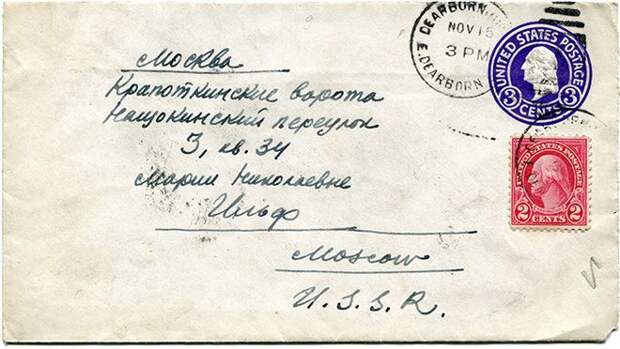 DEARBORN
NOV 15
3 PM
E. DEARBORN
UNITED STATES POSTAGE
3 CENTS 3
UNITED STATES POSTAGE
2 CENTS 2
Москва
Крапоткинские ворота
Нащокинский переулок
3, кв. 34
Марии Николаевне
Ильф
Moscow
U.S.S.R.